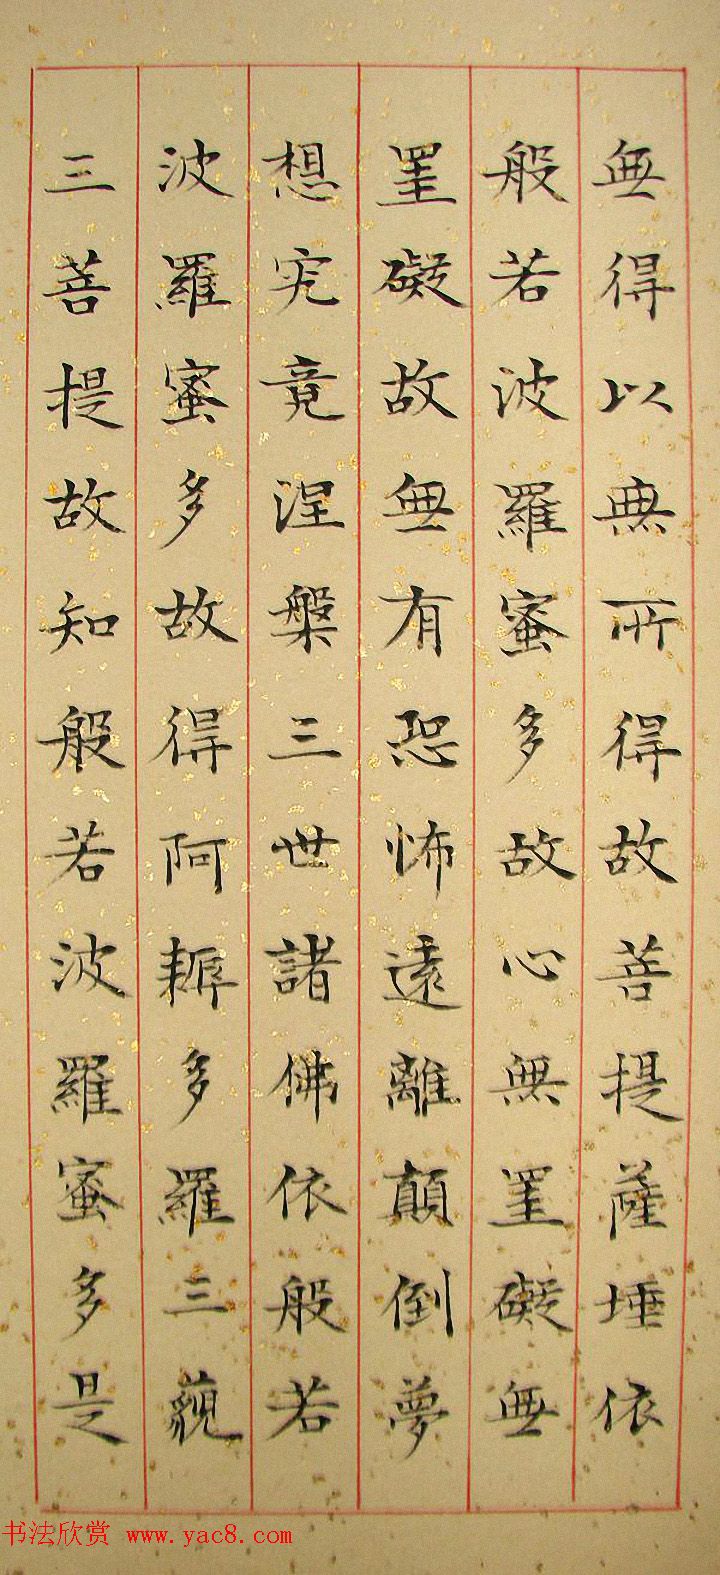 無得以無所得故菩提薩埵依
般若波羅蜜多故心無罣礙無
罣礙故無有恐怖遠離顛倒夢
想究竟涅槃三世諸佛依般若
波羅蜜多故得阿耨多羅三藐
三菩提故知般若波羅蜜多是
书法欣赏 www.yac8.com